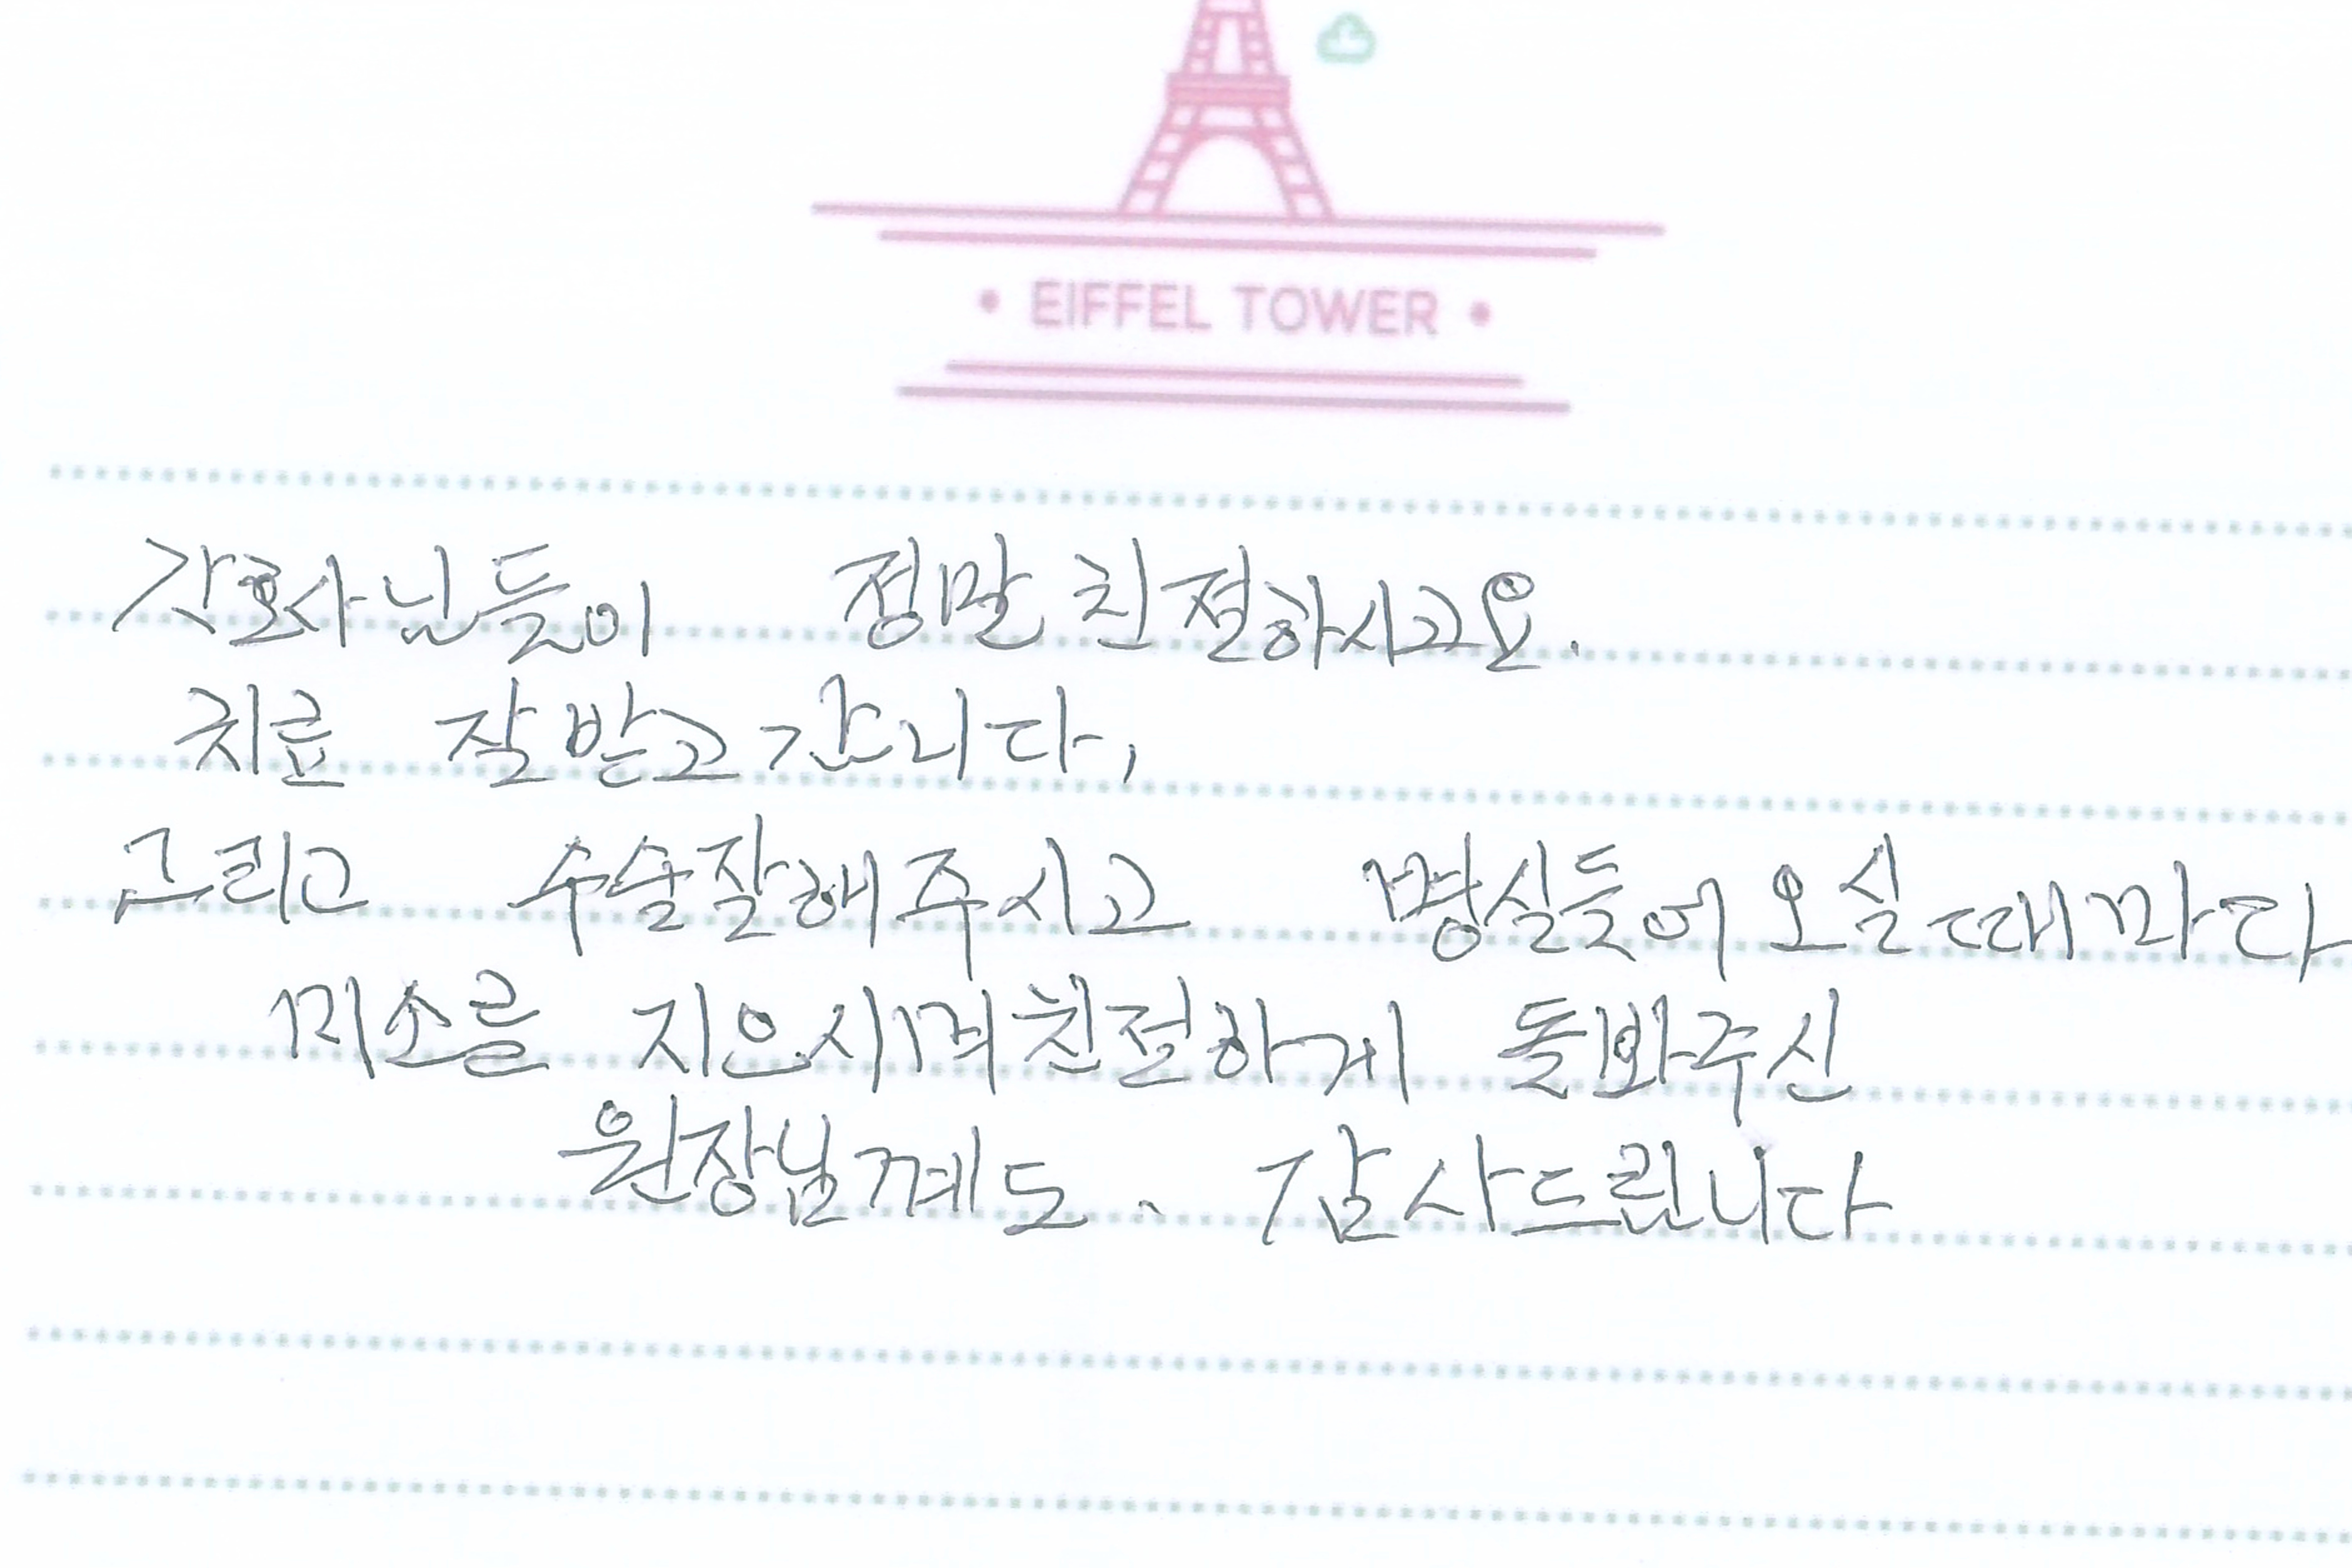 EIFFEL TOWER
간호사님들이 정말 친절하시고요.
치료 잘 받고 갑니다,
그리고 수술잘해주시고 병실들어오실때마다
미소를 지으시며 친절하게 돌봐주신
원장님께도. 감사드립니다